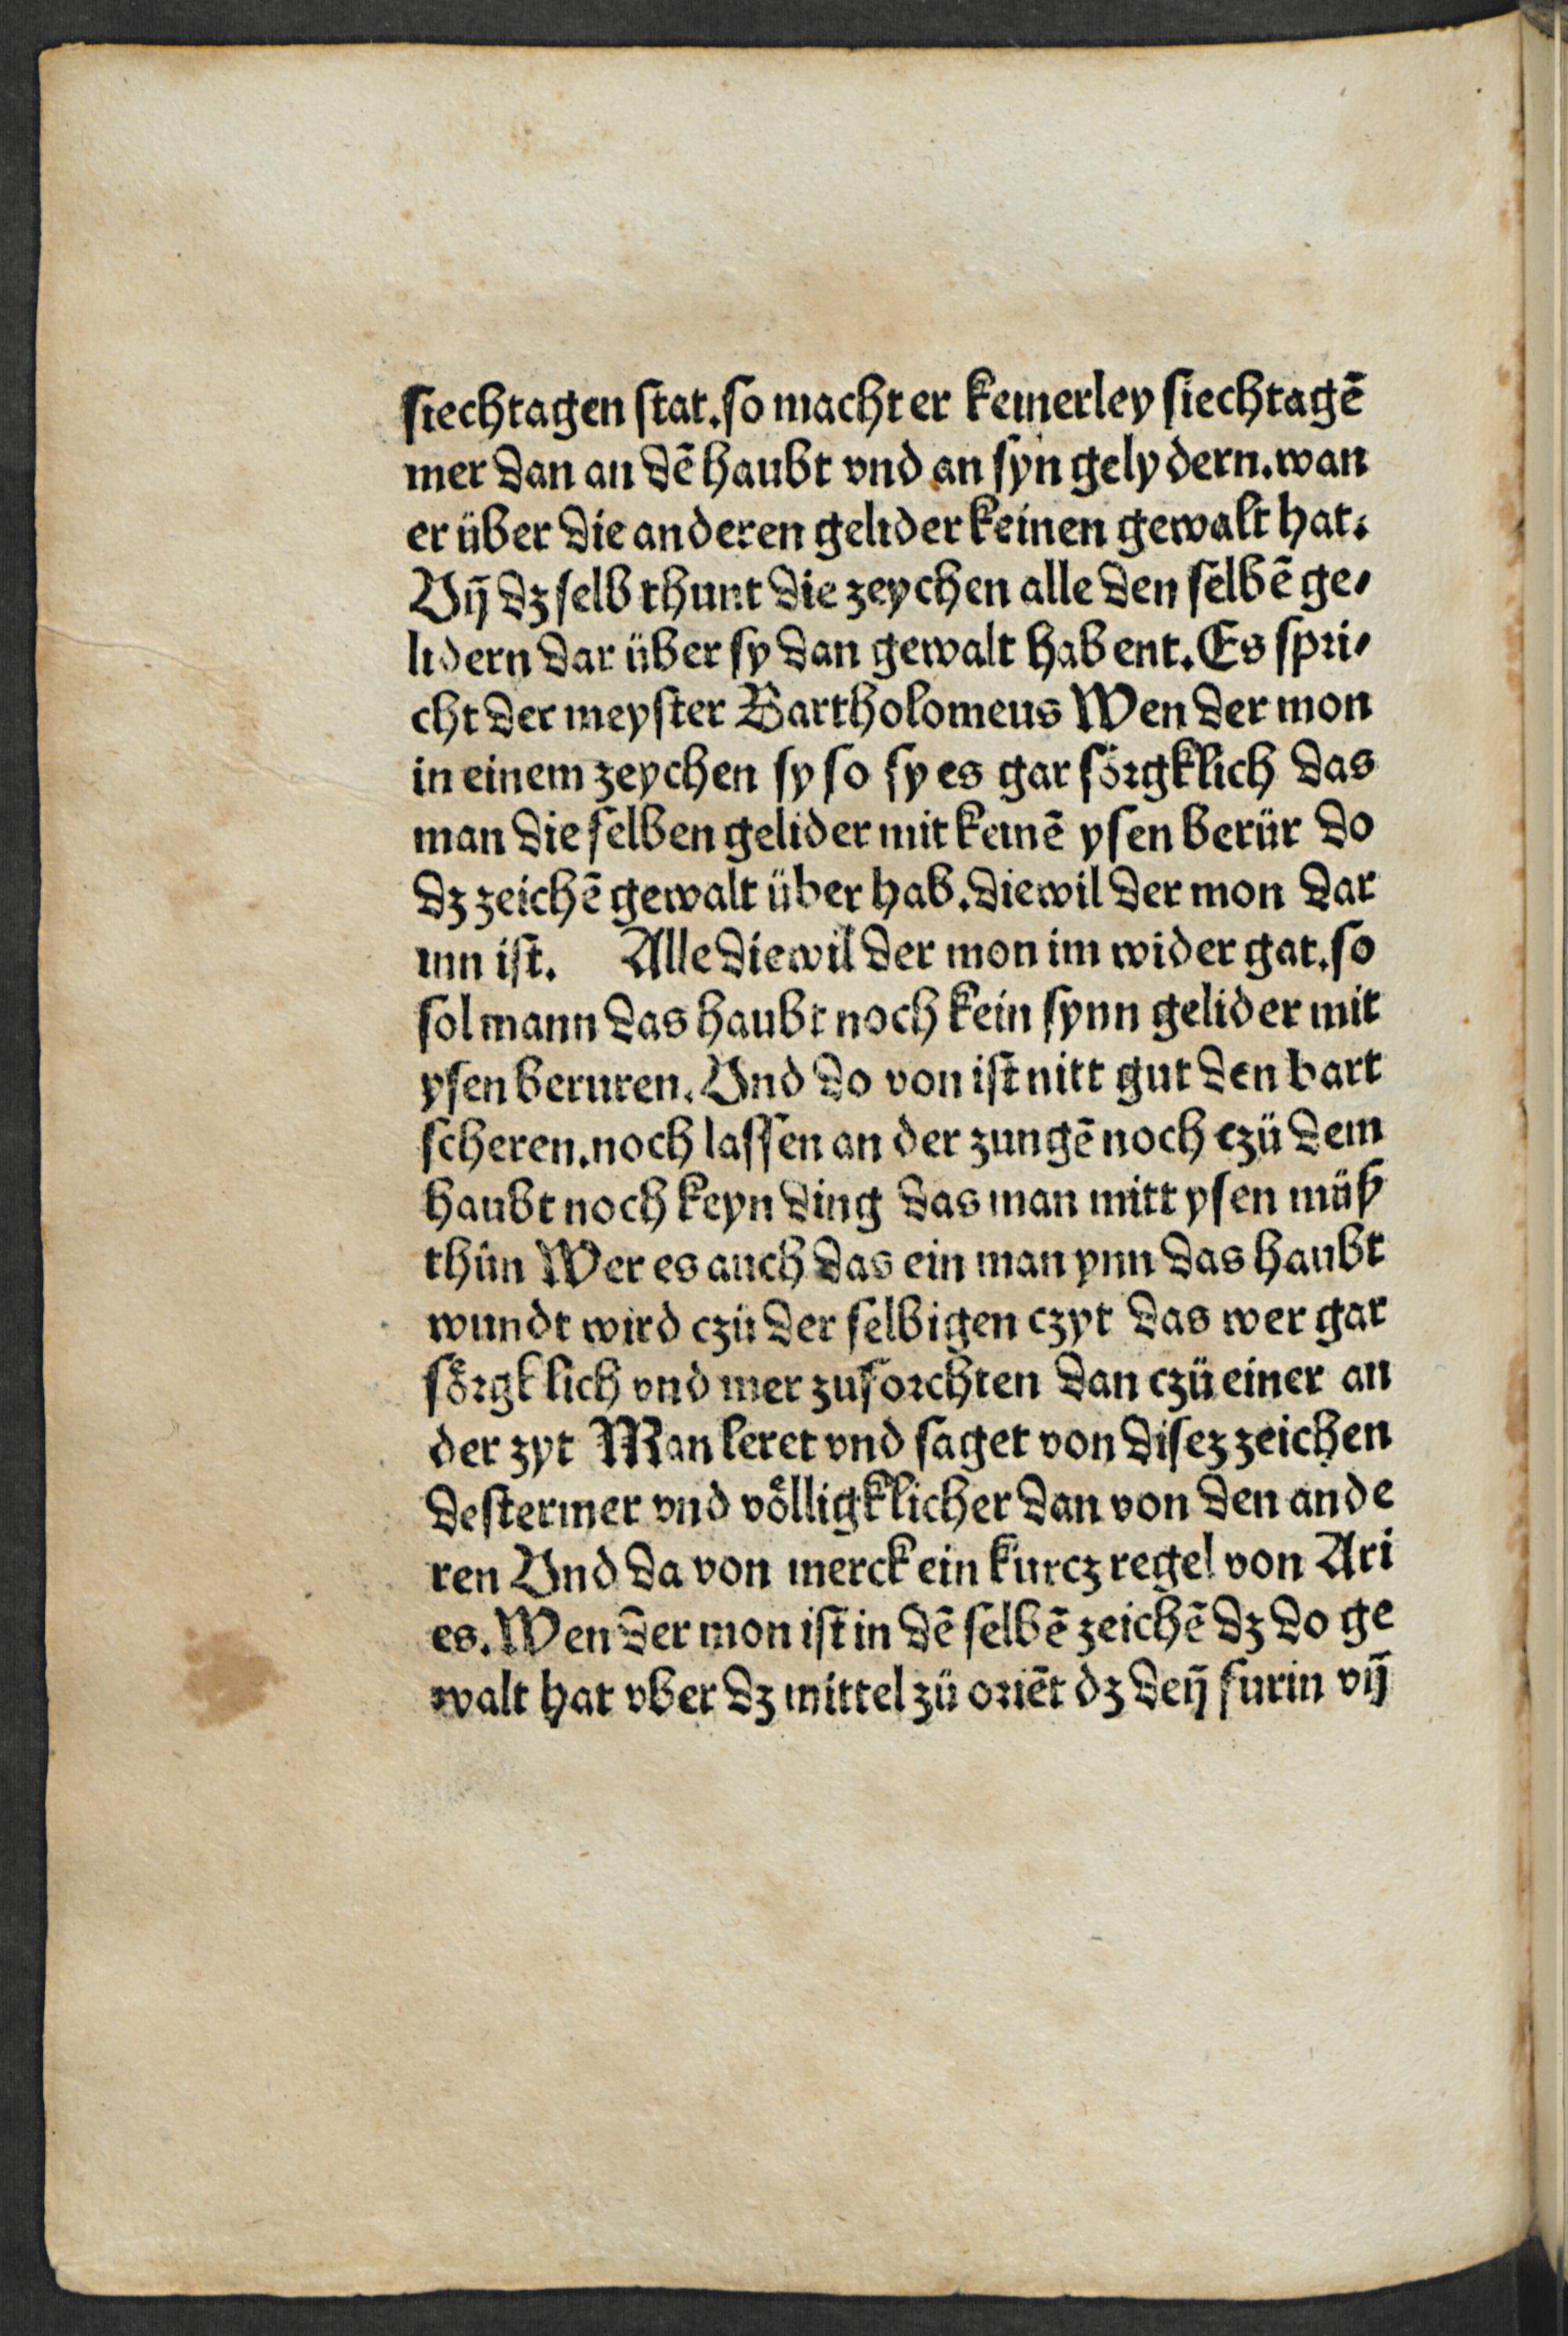 siechtagen stat. so macht er keinerley siechtagē
mer dan an dē haubt vnd an syn gelydern. wan
er über die anderen gelider keinen gewalt hat.
Vn̄ dz selb thunt die zeychen alle den selbē ge⸗
lidern dar über sy dan gewalt habent. Es spri⸗
cht der meyster Bartholomeus Wen der mon
in einem zeychen sy so sy es gar sörgklich das
man die selben gelider mit keinē ysen berür do
dz zeichē gewalt über hab. diewil der mon dar
inn ist. Alle diewil der mon im wider gat. so
sol mann das haubt noch kein synn gelider mit
ysen beruren. Vnd do von ist nitt gut den bart
scheren. noch lassen an der zungē noch czü dem
haubt noch keyn ding das man mitt ysen müß
thün Wer es auch das ein man ynn das haubt
wundt wird czü der selbigen czyt das wer gar
sörgklich vnd mer zuforchten dan czü einer an
der zyt Man leret vnd saget von disez zeichen
destermer vnd völligklicher dan von den ande
ren Vnd da von merck ein kurcz regel von Ari
es. Wen der mon ist in dē selbē zeichē dz do ge
walt hat vber dz mittel zü oriēt dz den̄ furin vn̄